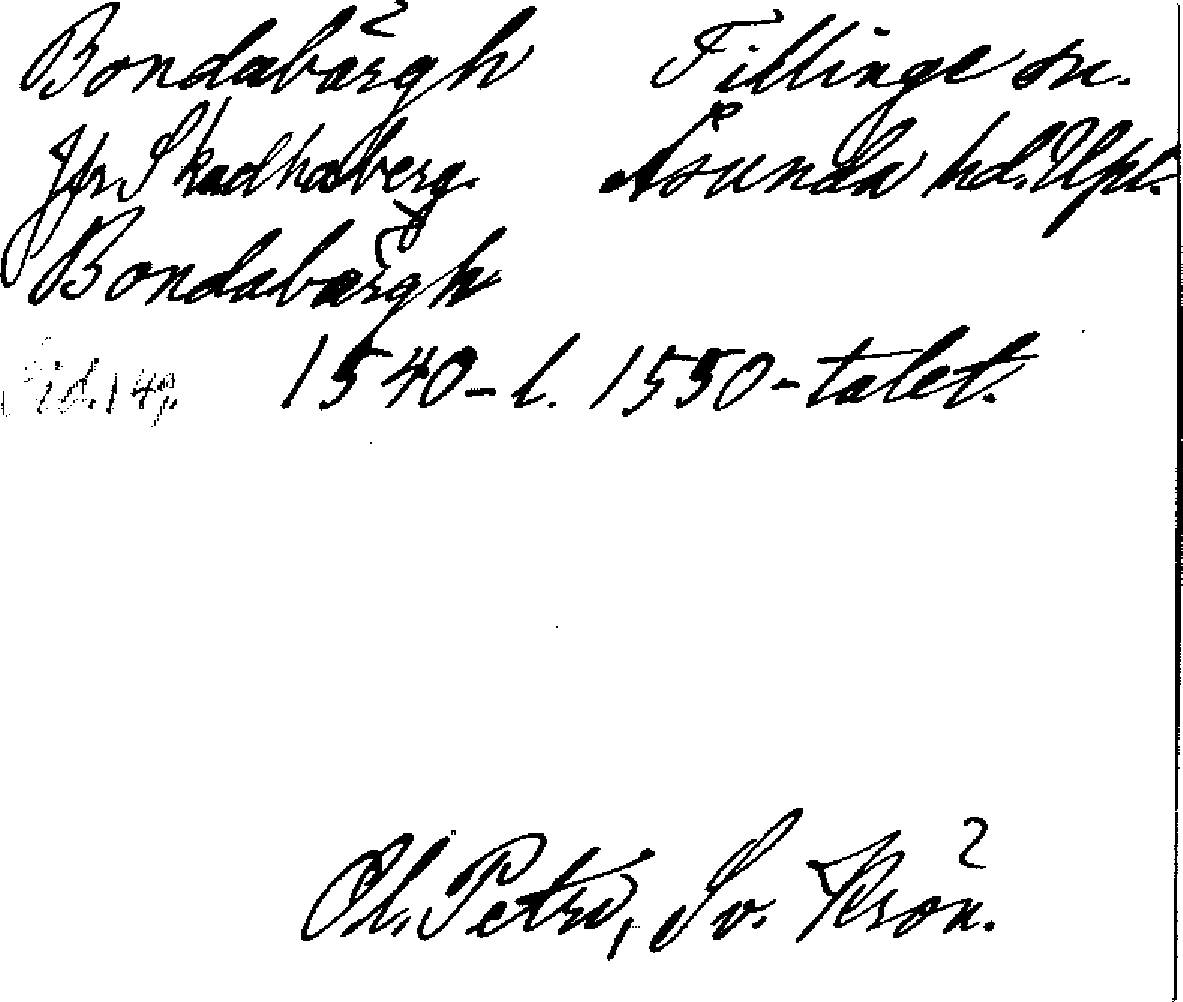 Bondabærgh Tillinge sn.
Jfr. Skadhaberg. Åsunda hd. Upl.
Bondabærgh
Sid. 149. 1540- l. 1550-talet.
Ol. Petri, Sv. Krön.